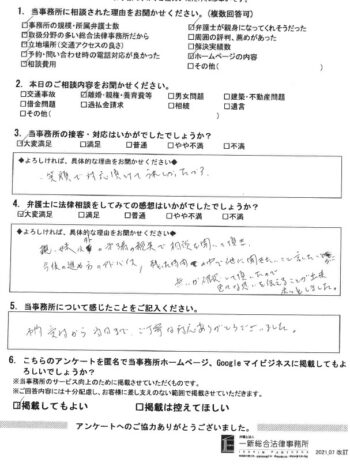 1. 当事務所に相談された理由をお聞かせください。(複数回答可)
□事務所の規模・所属弁護士数
☑弁護士が親身になってくれそうだった
☑取扱分野の多い総合法律事務所だから
□周囲の評判、薦めがあった
□立地場所(交通アクセスの良さ)
□解決実績数
□予約・問い合わせ時の電話対応が良かった
☑ホームページの内容
□相談費用
□その他( )
2. 本日のご相談内容をお聞かせください。
□交通事故 ☑離婚・親権・養育費等 □男女問題 □建築・不動産問題
□借金問題 □過払金請求 □相続 □遺言
□その他( )
3. 当事務所の接客・対応はいかがでしたでしょうか?
☑大変満足 □満足 □普通 □やや不満 □不満
◆よろしければ、具体的な理由をお聞かせください◆
笑顔で対応頂けて
4. 弁護士に法律相談をしてみての感想はいかがでしたでしょうか?
☑大変満足 □満足 □普通 □やや不満 □不満
◆よろしければ、具体的な理由をお聞かせください◆
相談を聞いて頂き
今後の進め方のアドバイス
頂いたので
5. 当事務所について感じたことをご記入ください。
ありがとうございました。
6. こちらのアンケートを匿名で当事務所ホームページ、Googleマイビジネスに掲載してもよ
ろしいでしょうか?
※当事務所のサービス向上のために掲載させていただくものです。
※ご回答内容には十分配慮し、お客様に差し支えのない範囲で掲載させていただきます。
☑掲載してもよい □掲載は控えてほしい
アンケートへのご協力ありがとうございました。
弁護士法人
一新総合法律事務所
2021.07 改訂